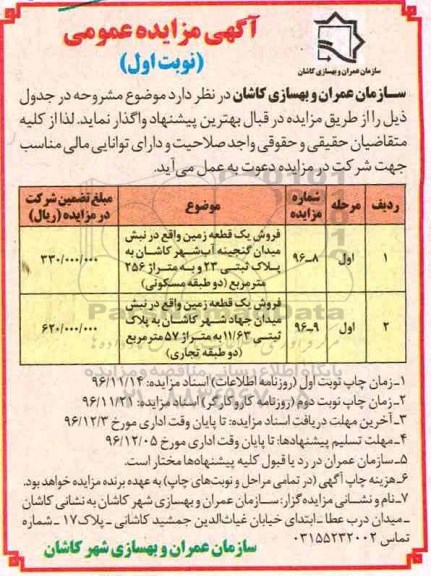 آگهی مزایده عمومی
(نوبت اول)
سازمان عمران و بهسازی کاشان
سازمان عمران و بهسازی کاشان در نظر دارد موضوع مشروحه در جدول
ذیل را از طریق مزایده در قبال بهترین پیشنهاد واگذار نماید. لذا از کلیه
متقاضیان حقیقی و حقوقی واجد صلاحیت و دارای توانایی مالی مناسب
جهت شرکت در مزایده دعوت به عمل می‌آید.
ردیف مرحله شماره مزایده موضوع مبلغ تضمین شرکت در مزایده (ریال)
۱ اول ۸ـ۹۶ فروش یک قطعه زمین واقع در نبش ۳۳۰/۰۰۰/۰۰۰
میدان گنجینه آب‌شهر کاشان به
پلاک ثبتی ۲۳ و به متراژ ۲۵۶
مترمربع (دو طبقه مسکونی)
۲ اول ۹ـ۹۶ فروش یک قطعه زمین واقع در نبش ۶۲۰/۰۰۰/۰۰۰
میدان جهاد شهر کاشان به پلاک
ثبتی ۱۱/۶۳ به متراژ ۵۷ مترمربع
(دو طبقه تجاری)
۱ـ زمان چاپ نوبت اول (روزنامه اطلاعات) اسناد مزایده: ۹۶/۱۱/۱۴
۲ـ زمان چاپ نوبت دوم (روزنامه کار و کارگر) اسناد مزایده: ۹۶/۱۱/۲۱
۳ـ آخرین مهلت دریافت اسناد مزایده: تا پایان وقت اداری مورخ ۹۶/۱۲/۳
۴ـ مهلت تسلیم پیشنهادها: تا پایان وقت اداری مورخ ۹۶/۱۲/۰۵
۵ـ سازمان عمران در رد یا قبول کلیه پیشنهادها مختار است.
۶ـ هزینه چاپ آگهی (در تمامی مراحل و نوبت‌های چاپ) به عهده برنده مزایده خواهد بود.
۷ـ نام و نشانی مزایده گزار: سازمان عمران و بهسازی شهر کاشان به نشانی کاشان
ـ میدان درب عطا ـ ابتدای خیابان غیاث‌الدین جمشید کاشانی ـ پلاک ۱۷ ـ شماره
تماس ۰۳۱۵۵۲۳۲۰۰۲
سازمان عمران و بهسازی شهر کاشان